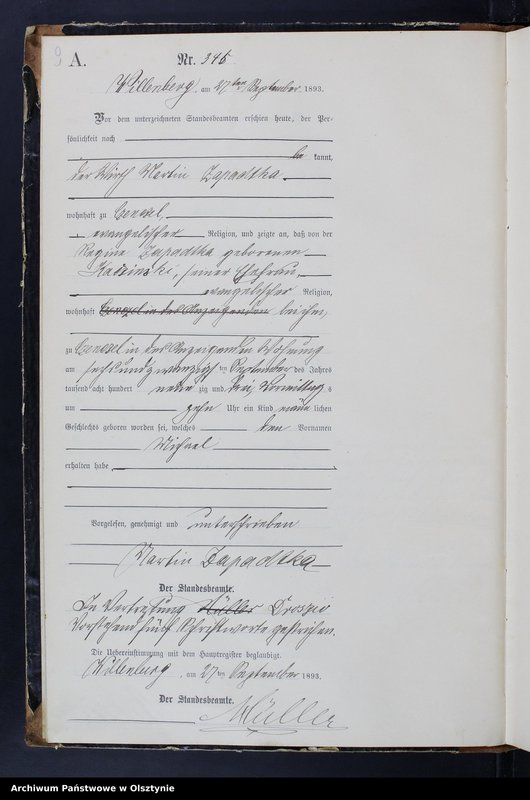 9 A. Nr. 346
Willenberg, am 27ten September 1893.
Vor dem unterzeichneten Standesbeamten erschien heute, der Per-
sönlichkeit nach
be kannt,
der Wirth Martin Zapadtka
wohnhaft zu
evangelischer Religion, und zeigte an, daß von der
Regine Zapadtka geborenen
seiner Ehefrau,
evangelischer Religion,
wohnhaft in des Anzeigenden bei ihm,
zu in des Anzeigenden Wohnung
am sechsundzwanzigsten September des Jahres
tausend acht hundert neun zig und drei, Vormittags
um zehn Uhr ein Kind männ lichen
Geschlechts geboren worden sei, welches den Vornamen
Michael
erhalten habe
Vorgelesen, genehmigt und unterschrieben
Martin Zapadtka
Der Standesbeamte.
In Vertretung Müller
Vorstehend fünf Schriftworte gestrichen.
Die Uebereinstimmung mit dem Hauptregister beglaubigt.
Willenberg, am 27ten September 1893.
Der Standesbeamte.
Müller
Archiwum Państwowe w Olsztynie